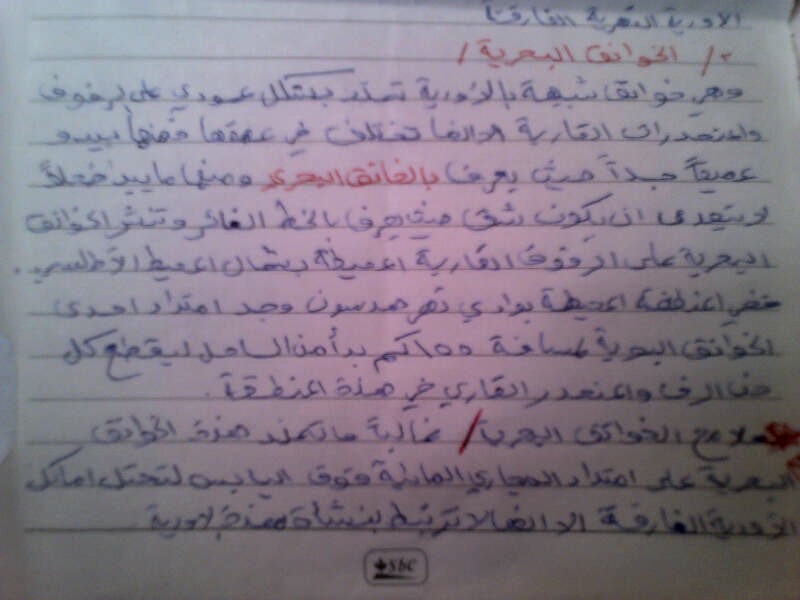 الأودية النهرية الغارقة
٢/ الخوانق البحرية /
وهي خوانق شبيهة بالأودية تمتد بشكل عمودي على الرفوف
والمنحدرات القارية الا انها تختلف في عمقها فمنها يبدو
عميقاً جداً حيث يعرف بالخانق البحري ومنها ما يبدو ضحلاً
لا يتعدى ان يكون شق حيث يعرف بالخط الغائر وتنتشر الخوانق
البحرية على الرفوف القارية المحيطة بشمال المحيط الأطلسي .
ففي المنطقة المحيطة بوادي نهر هدسون وجد امتداد احدى
الخوانق البحرية لمسافة ١٥٥ كم بدأ من الساحل ليقطع كل
من الرف والمنحدر القاري في هذة المنطقة .
ملامح الخوانق البحرية / غالبة ما تمتد هذة الخوانق
البحرية على امتداد المجاري المائية فوق اليابس لتحتل اماكن
الأودية الغارقة الا انها لا ترتبط بنشأة هذة الاودية
sbc